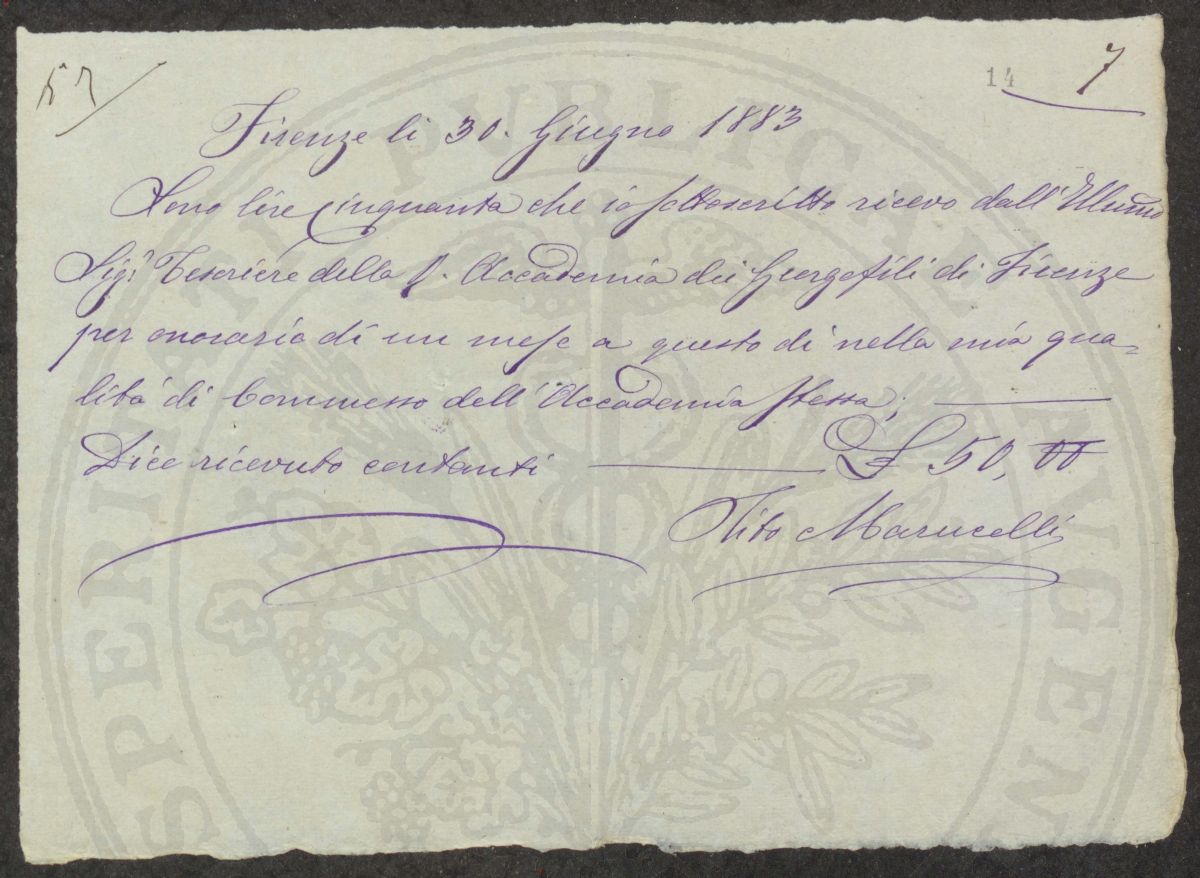 52
14 7
Firenze li 30. Giugno 1883
Sono lire Cinquanta che io sottoscritto ricevo dall'Illumo
Sigr. Tesoriere della R. Accademia dei Georgofili di Firenze
per onorario di un mese a questo dì nella mia qua=
lità di Commesso dell'Accademia stessa;
Dico ricevuto contanti £ 50,00
Tito Marucelli
PUBLICAE
PROSPERITATI AVGEN